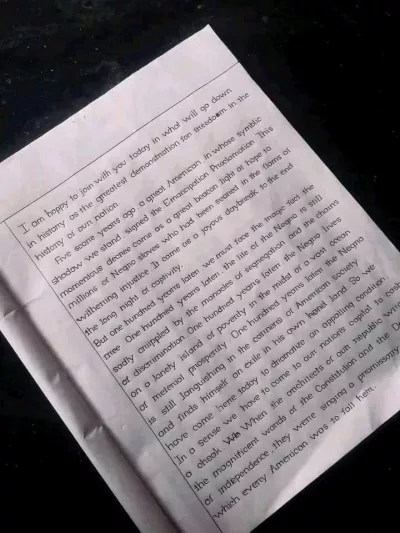 I am happy to join with you today in what will go down
in history as the greatest demonstration for freedom in the
history of our nation.
Five score years ago a great American in whose symblic
shadow we stand signed the Emancipation Proclamation. This
momentous decree came as a great beacon light of hope to
millions of Negro slaves who had been seared in the flams of
withering injustice. It came as a joyous daybreak to the end
the long night of captivity.
But one hundred years later, we must face the tragic fact the
free. One hundred years later, the life of the Negro is still
sadly crippled by the manacles of segregation and the chains
of discrimination. One hundred years later the Negro lives
on a lonely island of poverty in the midst of a vast ocean
of material prosperity. One hundred years later the Negro
is still languishing in the corners of American society
and finds himself an exile in his own land. So we
have come here today to dramatize an appalling condition.
In a sense we have to come to our nation's capital to cash
a cheak. When the architects of our republic wrote
the magnificent words of the Constitution and the De
of independence, they were singing a promissory
which every American was to fall heir.